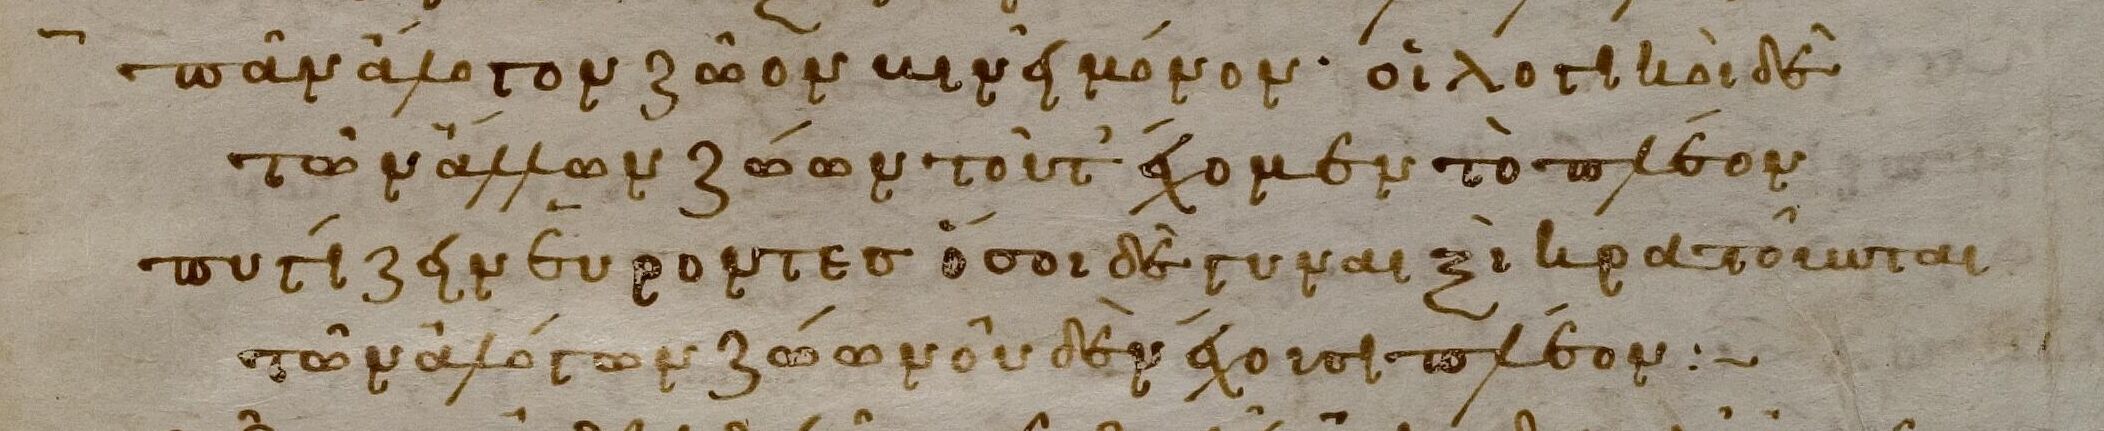 πᾶν ἄλογον ζῶον βινεῖ μόνον· οἱ λογικοὶ δὲ
τῶν ἄλλων ζώων τοῦτ' ἔχομεν τὸ πλέον
πυγίζειν εὑρόντες ὅσοι δὲ γυναιξὶ κρατοῦνται
τῶν ἀλόγων ζώων οὐδὲν ἔχουσι πλέον :~